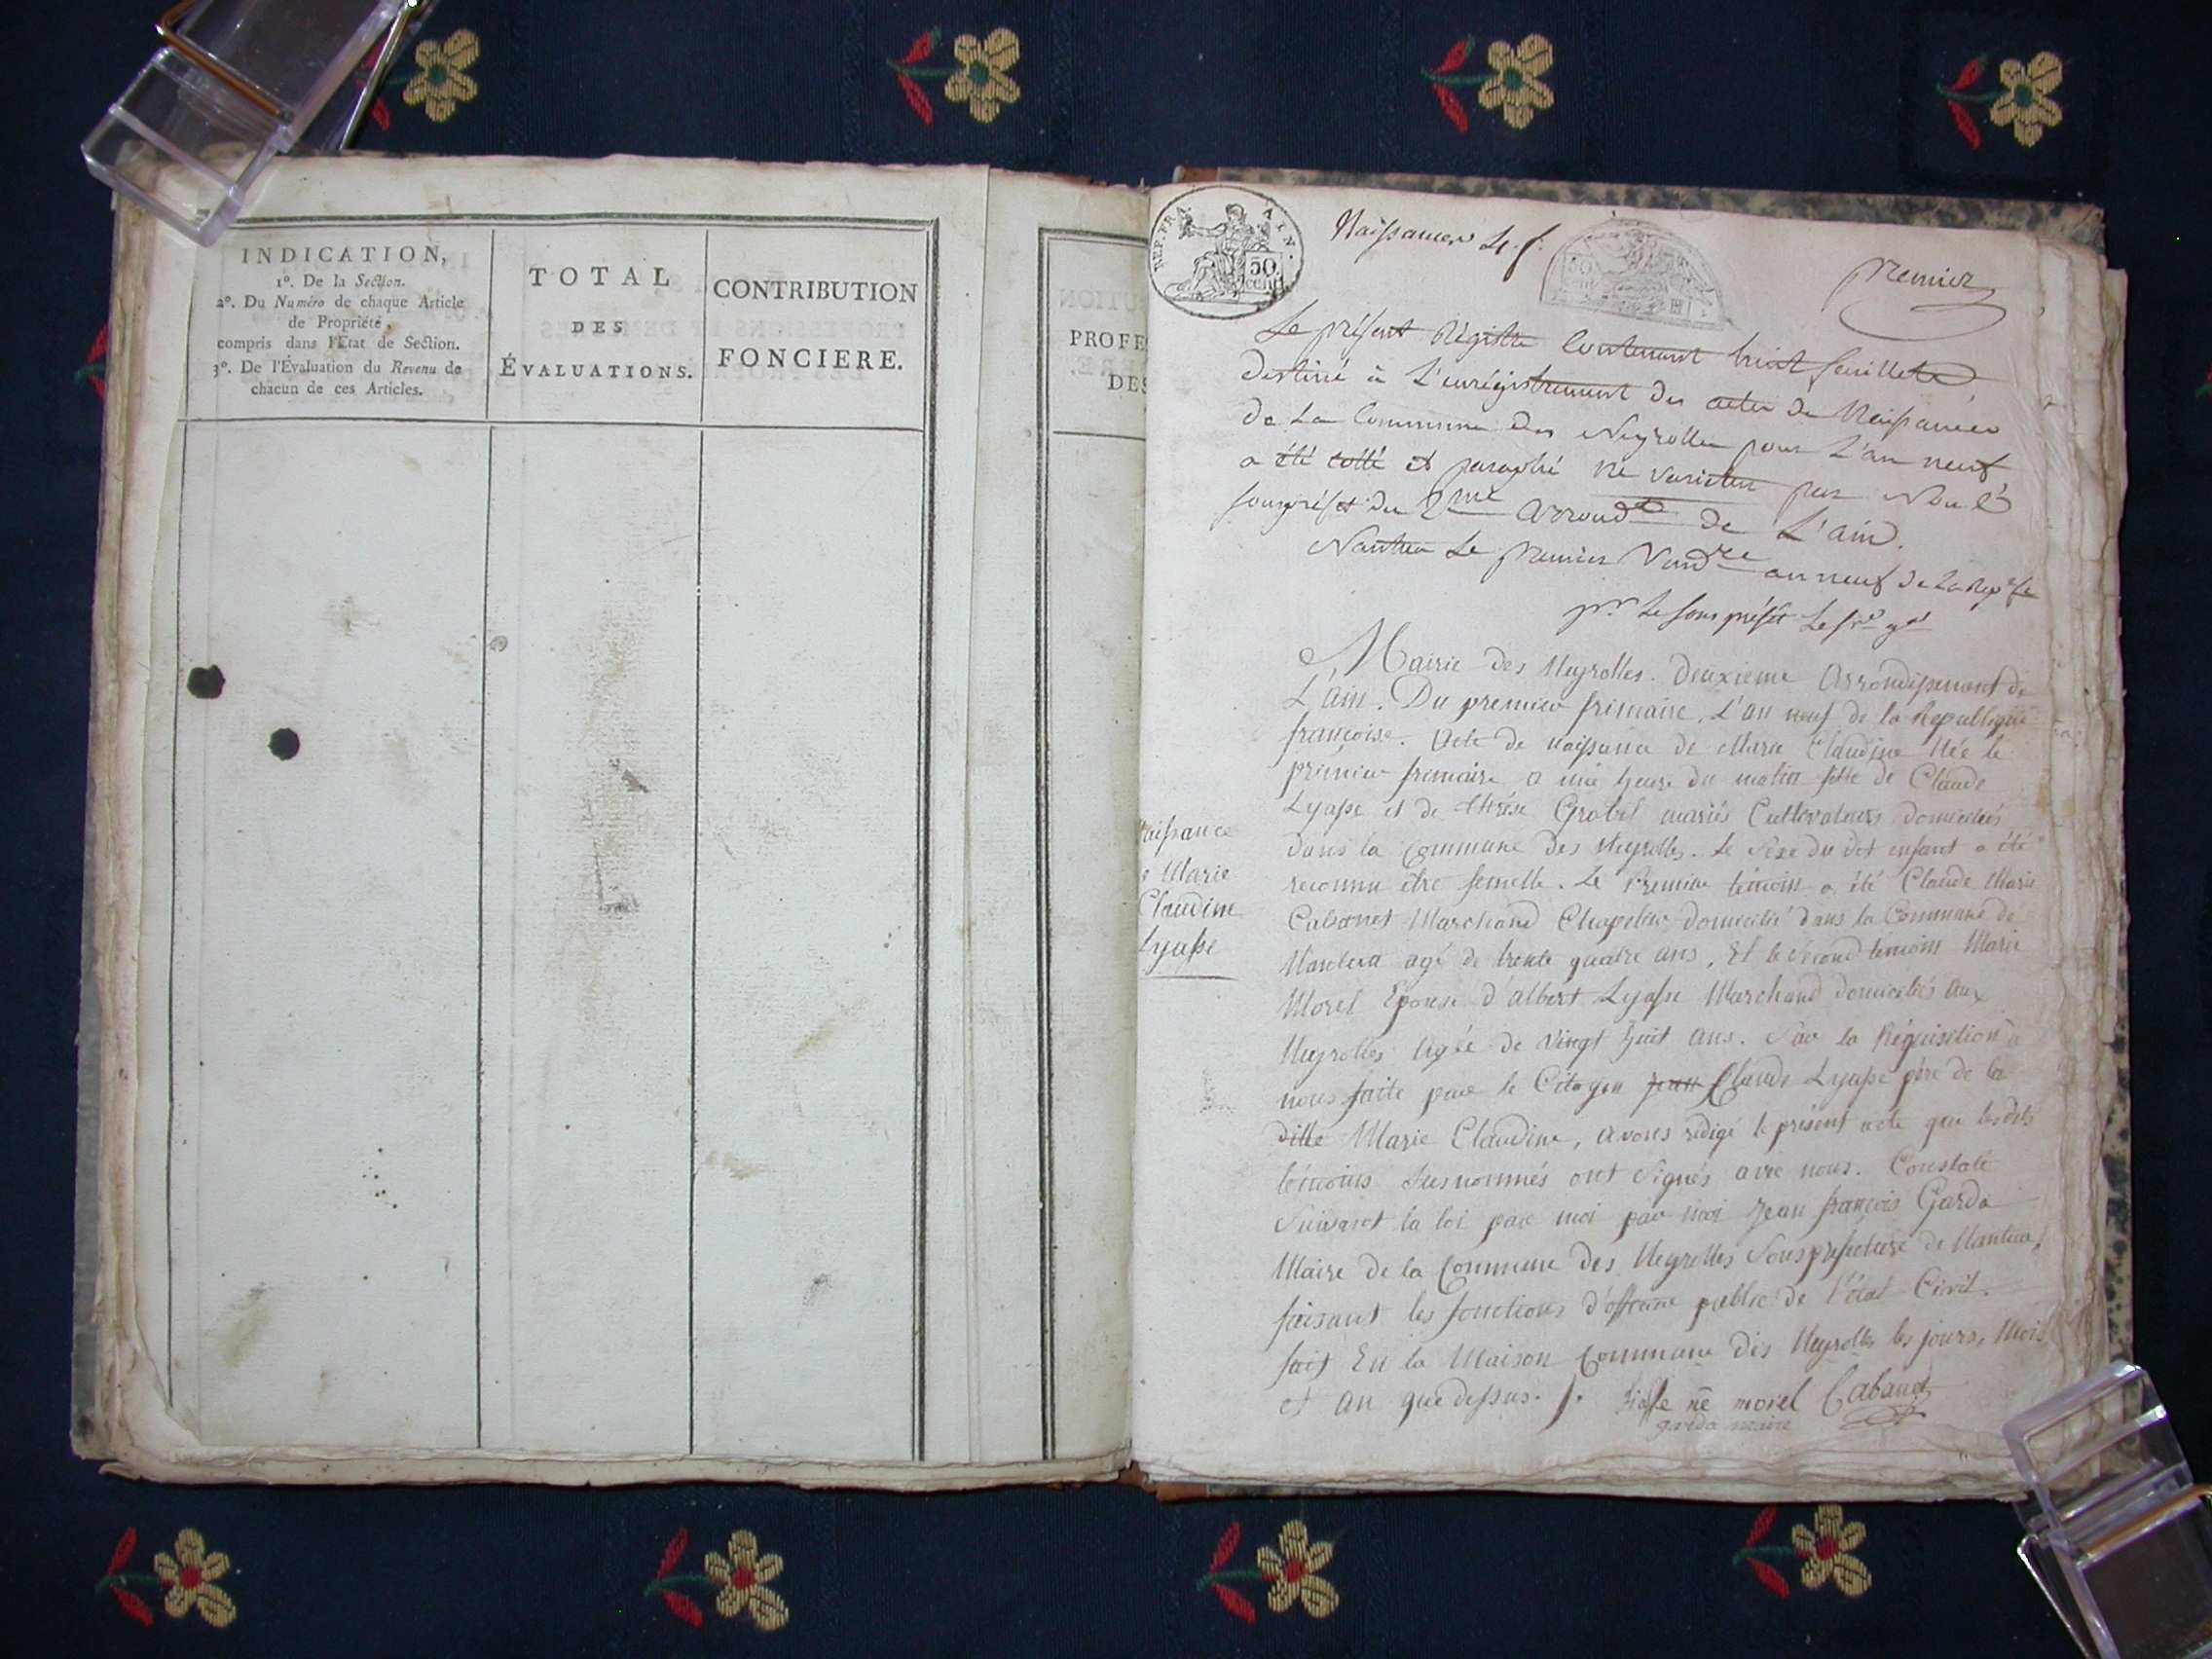 INDICATION,
1º. De la Section.
2º. Du Numéro de chaque Article
de Propriété,
compris dans l'Etat de Section.
3º. De l'Évaluation du Revenu de
chacun de ces Articles.
TOTAL
DES
ÉVALUATIONS.
CONTRIBUTION
FONCIERE.
PROFE
DES
REP. FRA. AIN.
50
cent
Naissances
premier
Le présent Régistre Contenant huit feuillets
destiné à L'enrégistrement des actes de Naissances
de La Commune des Neyrolles pour L'an neuf
a été cotté et paraphé ne varietur par Nous
souspréfet du 2me arrondt de L'ain.
Nantua Le premier Vendre an neuf de La Rep
pr Le sous préfet
Mairie des Neyrolles. Deuxieme Arrondissement de
L'Ain. Du premier frimaire, L'an neuf de la Republique
françoise. Acte de naissance de Marie Claudine Née le
premier frimaire a une heure du matin fille de Claude
Lyasse et de thérèse Grobel mariés Cultivateurs domiciliés
dans la Commune des Neyrolles. Le Sexe du dit enfant a été
reconnu être femelle. Le Premier témoin a été Claude Marie
Cabanet Marchand Chapelier domicilié dans la Commune de
Nantua agé de trente quatre ans, Et le second temoin Marie
Morel Epouse d'albert Lyasse Marchand domiciliés aux
Neyrolles Agée de Vingt huit ans. Sur la Réquisition à
nous faite par le Citoyen Jean Claude Lyasse père de la
ditte Marie Claudine, avons redigé le présent acte que les dits
témoins Susnommés ont Signés avec nous. Constaté
Suivant la loi par moi par moi Jean françois Garda
Maire de la Commune des Neyrolles Sousprefecture de Nantua,
faisant les fonctions d'officier public de l'état Civil.
fait En la Maison Commune des Neyrolles les jours, Mois
et an que dessus.
né morel Cabanet
garda maire
Naissance
Marie
Claudine
Lyasse